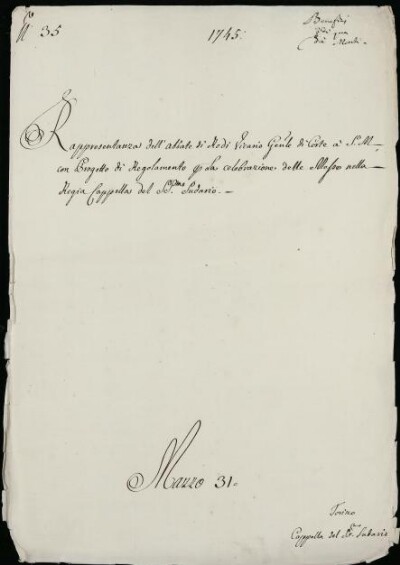 N° 35
1745.
Benefizi
di qua
da' Monti.
Rappresentanza dell'Abate di Rodi Vicario Gen.le di Corte a S. M.
con Progetto di Regolamento p la celebrazione delle Messe nella
Regia Cappella del SS.mo Sudario.
Marzo 31.
Torino
Cappella del SS. Sudario